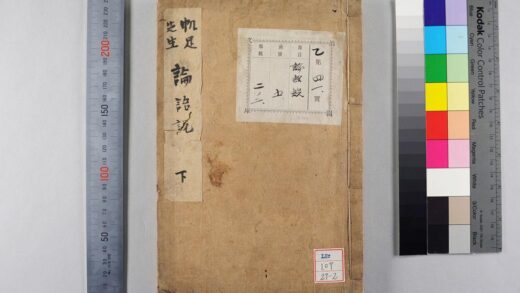 帆足
先生
論語説
下
乙第四一號
二ノ二
107
27-2
200
150
100
50
Kodak Color Control Patches
Blue
Cyan
Green
Yellow
Red
Magenta
White
3/Color
Black